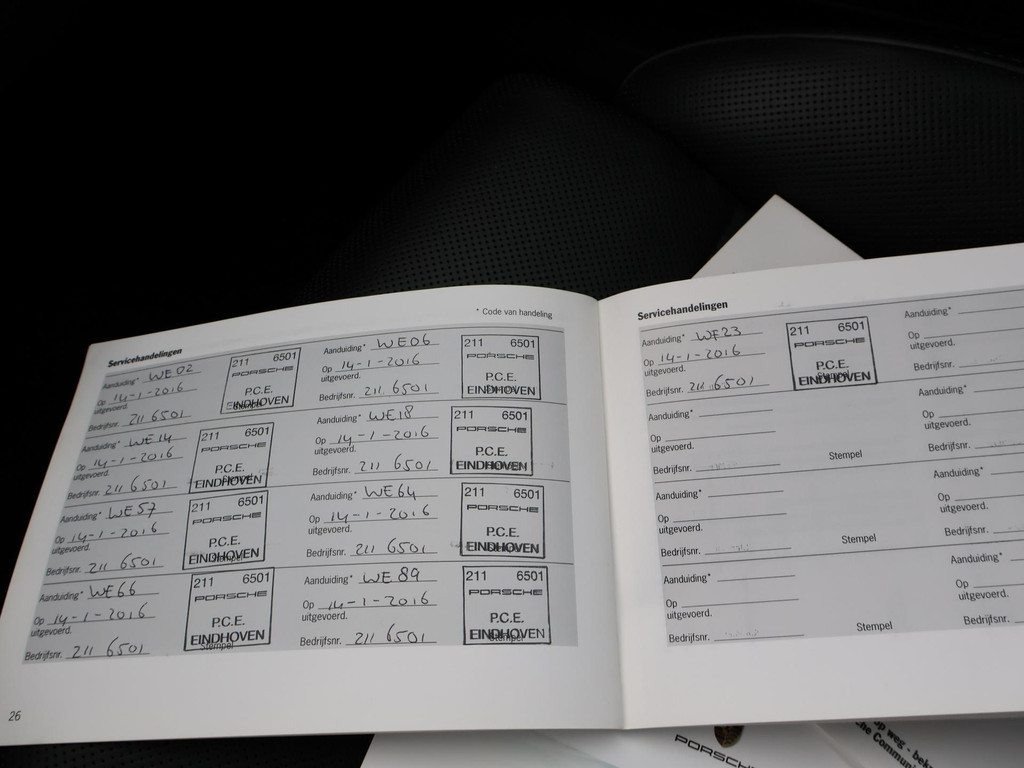 * Code van handeling
Servicehandelingen
Aanduiding* WE02
Op 14-1-2016
uitgevoerd.
Bedrijfsnr. 211 6501
211 6501
PORSCHE
P.C.E.
EINDHOVEN
Aanduiding* WE06
Op 14-1-2016
uitgevoerd.
Bedrijfsnr. 211 6501
211 6501
PORSCHE
P.C.E.
EINDHOVEN
Aanduiding* WE14
Op 14-1-2016
uitgevoerd.
Bedrijfsnr. 211 6501
211 6501
PORSCHE
P.C.E.
EINDHOVEN
Aanduiding* WE18
Op 14-1-2016
uitgevoerd.
Bedrijfsnr. 211 6501
211 6501
PORSCHE
P.C.E.
EINDHOVEN
Aanduiding* WE57
Op 14-1-2016
uitgevoerd.
Bedrijfsnr. 211 6501
211 6501
PORSCHE
P.C.E.
EINDHOVEN
Stempel
Aanduiding* WE64
Op 14-1-2016
uitgevoerd.
Bedrijfsnr. 211 6501
211 6501
PORSCHE
P.C.E.
EINDHOVEN
Aanduiding* WE66
Op 14-1-2016
uitgevoerd.
Bedrijfsnr. 211 6501
211 6501
PORSCHE
P.C.E.
EINDHOVEN
Stempel
Aanduiding* WE89
Op 14-1-2016
uitgevoerd.
Bedrijfsnr. 211 6501
211 6501
PORSCHE
P.C.E.
EINDHOVEN
Stempel
26
Servicehandelingen
Aanduiding* WF23
Op 14-1-2016
uitgevoerd.
Bedrijfsnr. 211 6501
211 6501
PORSCHE
P.C.E.
Stempel
EINDHOVEN
Aanduiding*
Op
uitgevoerd.
Bedrijfsnr.
Aanduiding*
Op
uitgevoerd.
Bedrijfsnr. Stempel
Aanduiding*
Op
uitgevoerd.
Bedrijfsnr.
Aanduiding*
Op
uitgevoerd.
Bedrijfsnr. Stempel
Aanduiding*
Op
uitgevoerd.
Bedrijfsnr.
Aanduiding*
Op
uitgevoerd.
Bedrijfsnr. Stempel
Aanduiding*
Op
uitgevoerd.
Bedrijfsnr.
PORSCHE
op weg - bek
he Commun